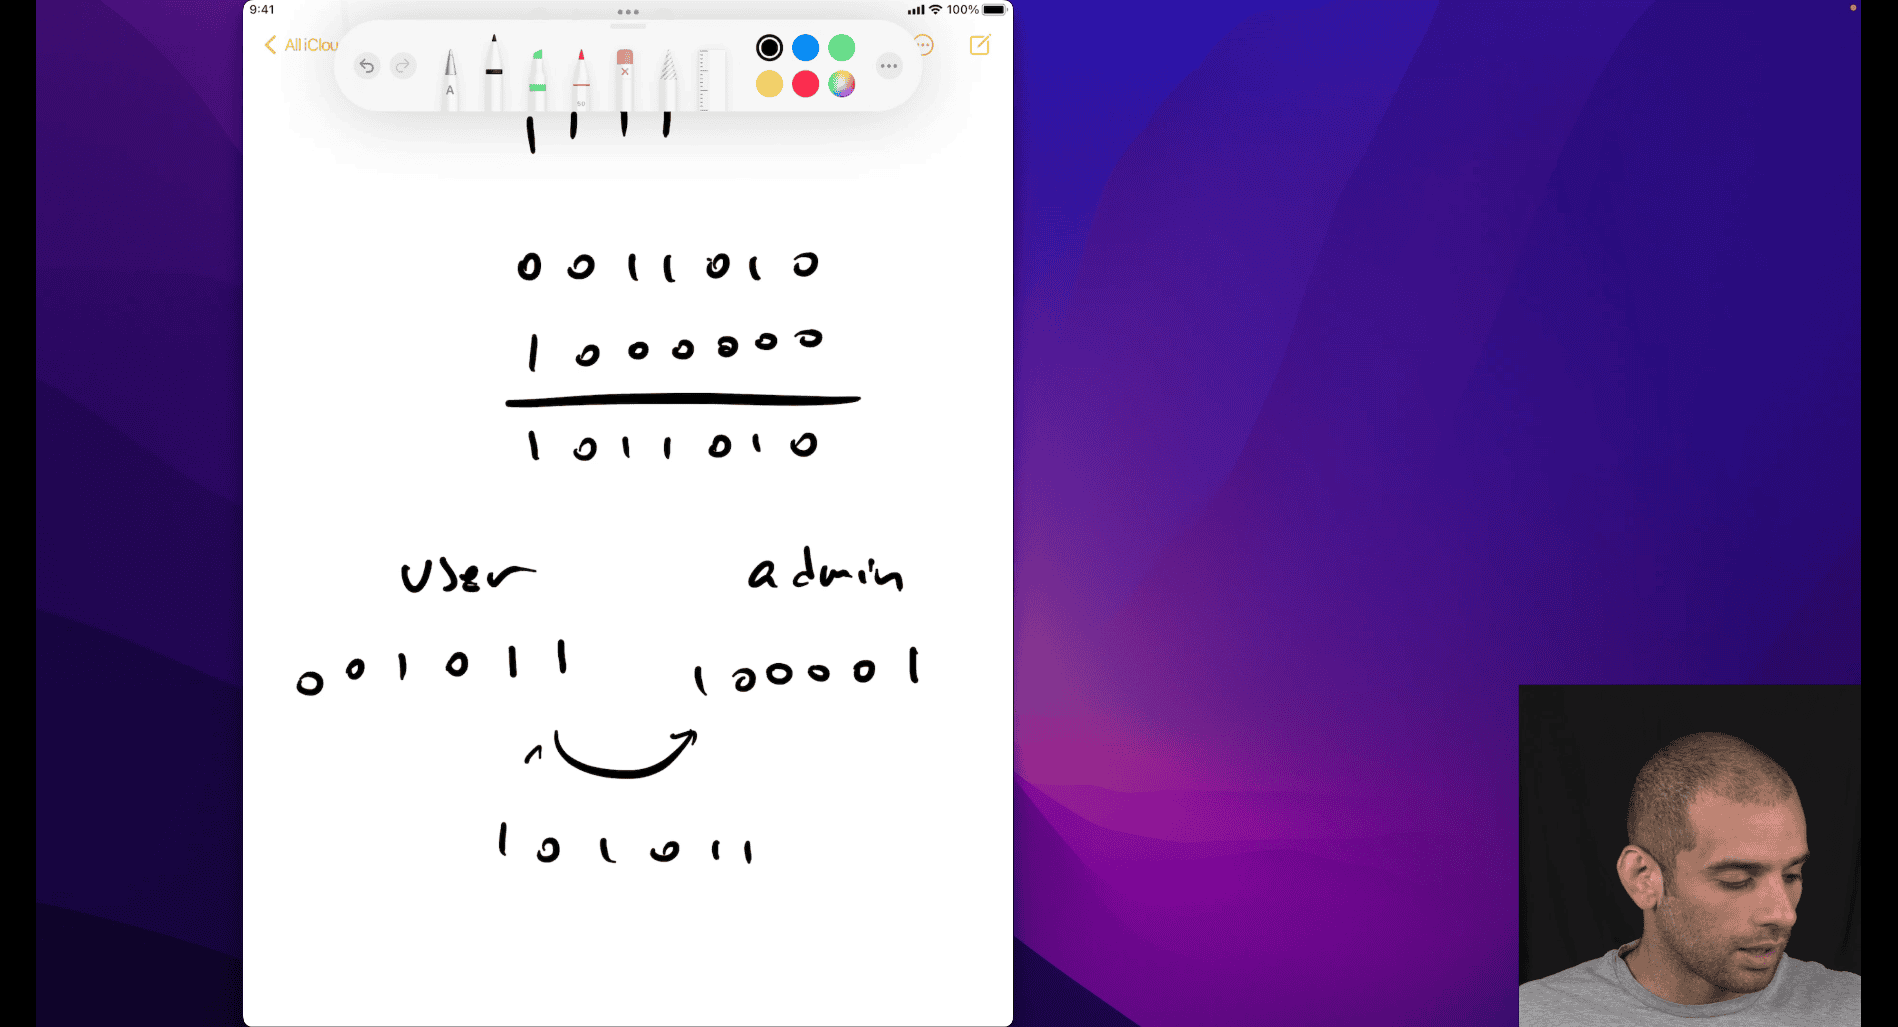 9:41 100%
All iClou
A
50
1 1 1 1
0 0 1 1 0 1 0
1 0 0 0 0 0 0
1 0 1 1 0 1 0
user admin
0 0 1 0 1 1 1 0 0 0 0 1
1 0 1 0 1 1